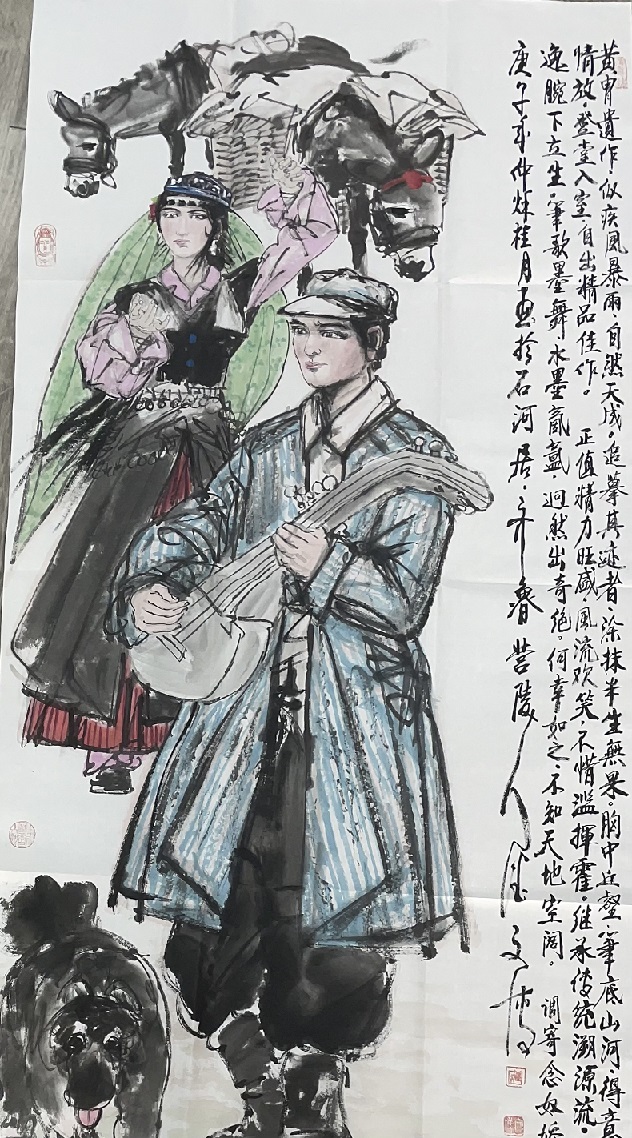 黄胄遗作，似疾风暴雨，自然天成。追摹其迹者，涂抹半生無果。胸中丘壑，笔底山河，得意
情放，登堂入室，自出精品佳作。正值精力旺盛，风流欢笑，不惜滥挥霍。继承传统溯源流，
逸腕下立生，笔歌墨舞，水墨氤氲，迥然出奇绝。何幸如之，不知天地空阔。调寄念奴娇
庚子年仲秋桂月画於石河居，齐鲁营陵人